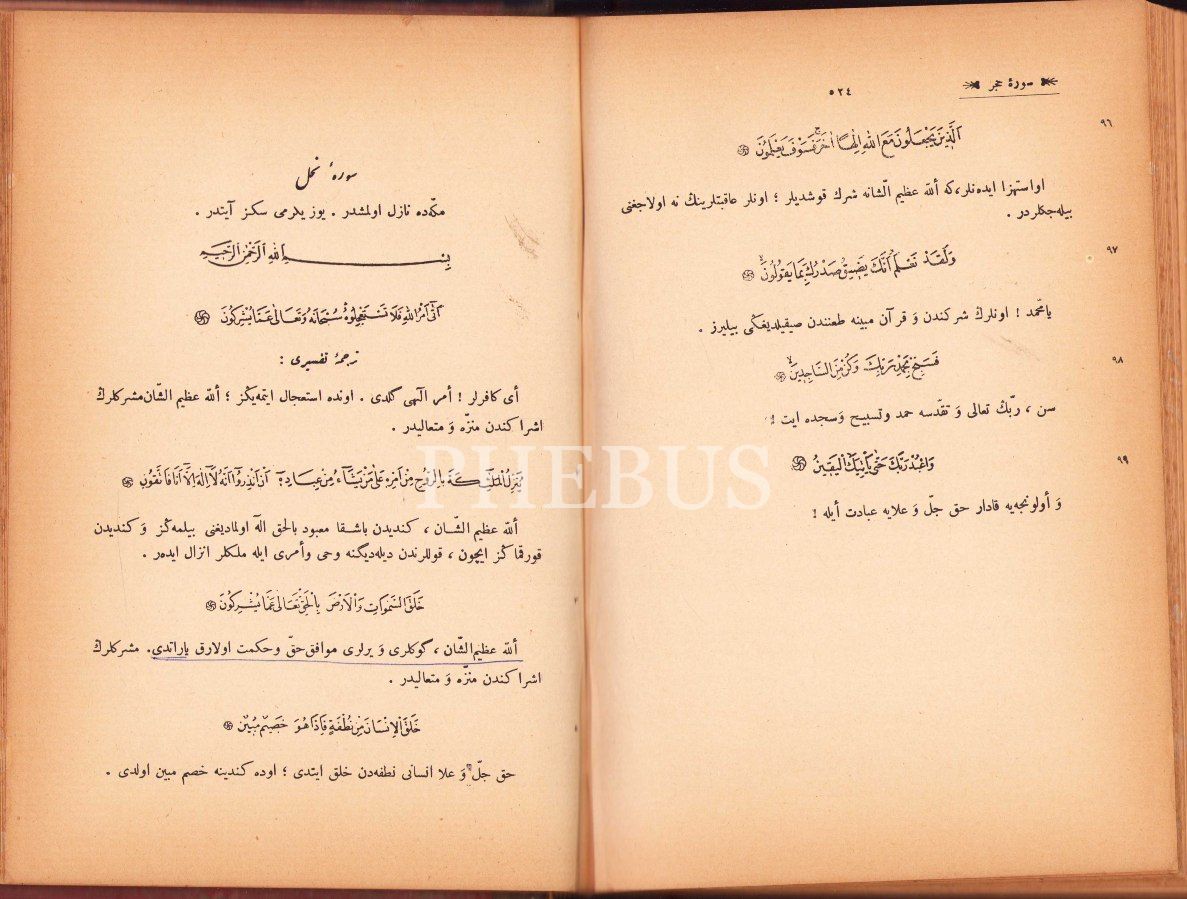 سورۀ حجر
٥٢٤
٩٦
اَلَّذِينَ يَجْعَلُونَ مَعَ اللهِ اِلٰهًا اٰخَرَ فَسَوْفَ يَعْلَمُونَ
او استهزا ایده‌نلر، که ألله عظیم الشانه شرك قوشدیلر ؛ اونلر عاقبتلرینڭ نه اولاجغنی
بیله‌جکلردر .
٩٧
وَلَقَدْ نَعْلَمُ اَنَّكَ يَضِيقُ صَدْرُكَ بِمَا يَقُولُونَ
یا محمد ! اونلرڭ شرکندن وَ قرآن مبینه طعنندن صیقیلدیغڭی بیلیرز .
٩٨
فَسَبِّحْ بِحَمْدِ رَبِّكَ وَكُنْ مِنَ السَّاجِدِينَ
سن ، ربّڭ تعالی وَ تقدّسه حمد وتسبیح وَسجده ایت !
٩٩
وَاعْبُدْ رَبَّكَ حَتّٰى يَاْتِيَكَ الْيَقِينُ
وَ أولونجه‌یه قادار حق جلّ وَ علایه عبادت أیله !
سورۀ نحل
مکّه‌ده نازل اولمشدر . یوز یکرمی سکز آیتدر .
بِسْمِ اللهِ الرَّحْمٰنِ الرَّحِيمِ
اَتٰى اَمْرُ اللهِ فَلَا تَسْتَعْجِلُوهُ سُبْحَانَهُ وَتَعَالٰى عَمَّا يُشْرِكُونَ
ترجمۀ تفسیری :
أی کافرلر ! أمر الٓهی گلدی . اونده استعجال ایتمه‌یڭز ؛ ألله عظیم الشّان مشرکلرڭ
اشراکندن منزّه وَ متعالیدر .
يُنَزِّلُ الْمَلٰئِكَةَ بِالرُّوحِ مِنْ اَمْرِهِ عَلٰى مَنْ يَشَاءُ مِنْ عِبَادِهِ اَنْ اَنْذِرُوا اَنَّهُ لَا اِلٰهَ اِلَّا اَنَا فَاتَّقُونِ
ألله عظیم الشّان ، کندیدن باشقا معبود بالحق الٓه اولمادیغنی بیلمه‌ڭز وَ کندیدن
قورقماڭز ایچون ، قوللرندن دیله‌دیگنه وحی وأمری ایله ملکلر انزال ایده‌ر .
خَلَقَ السَّمٰوَاتِ وَالْاَرْضَ بِالْحَقِّ تَعَالٰى عَمَّا يُشْرِكُونَ
ألله عظیم الشّان ، گوکلری وَ یرلری موافق حقّ وحکمت اولارق یاراتدی . مشرکلرڭ
اشراکندن منزّه وَ متعالیدر .
خَلَقَ الْاِنْسَانَ مِنْ نُطْفَةٍ فَاِذَا هُوَ خَصِيمٌ مُبِينٌ
حق جلّ وَ علا انسانی نطفه‌دن خلق ایتدی ؛ اوده کندینه خصم مبین اولدی .
PHEBUS